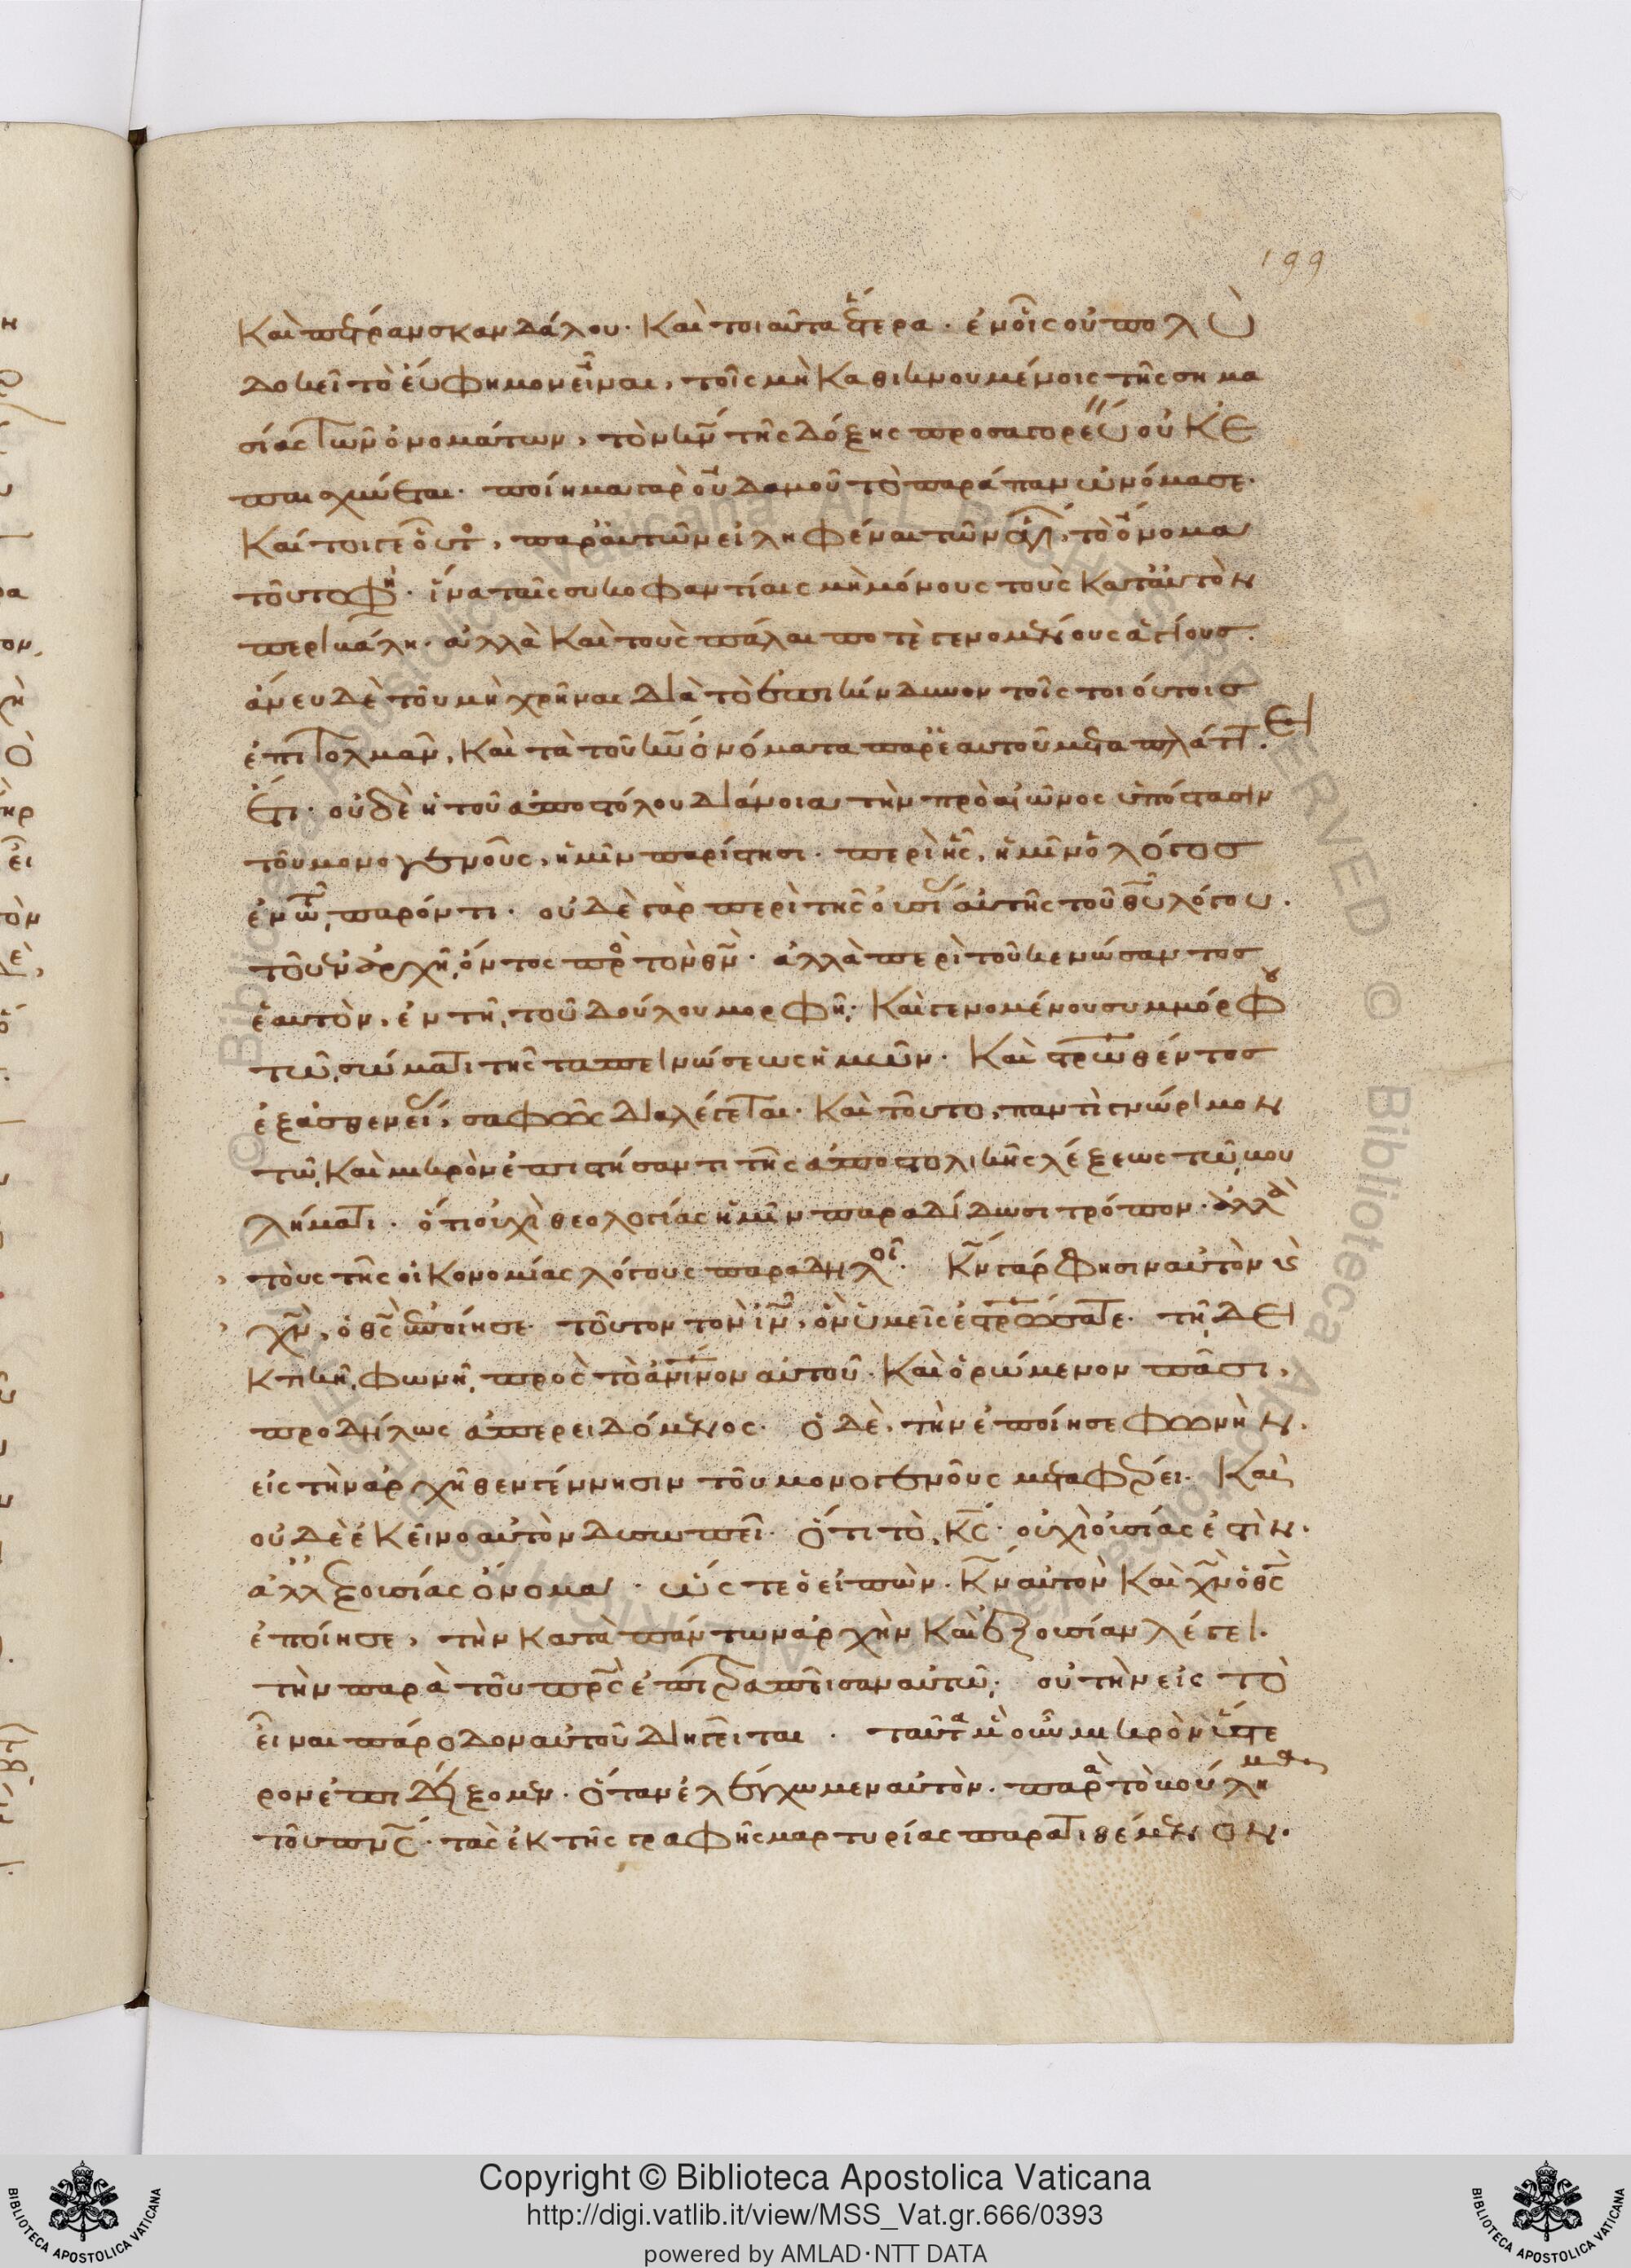 199
Καὶ πέτραν σκανδάλου. Καὶ τοιαῦτα ἕτερα. ἐν οἷς οὐ πολὺ
δοκεῖ τὸ εὔφημον εἶναι, τοῖς μὴ καθικνουμένοις τῆς σημα
σίας τῶν ὀνομάτων, τὸν κν̄ τῆς δόξης προσαγορεύων οὐκ ε
παισχύνεται. ποίημα γὰρ οὐδαμοῦ τὸ παράπαν ὠνόμασε.
Καί τοι γε οὗτος, παρ' αὐτῶν εἰληφέναι τῶν ἁγίων, τὸ ὄνομα
τοῦτο φη. ἵνα ταῖς συκοφαντίαις μὴ μόνους τοὺς κατ' αὐτὸν
περιβάλη. ἀλλὰ καὶ τοὺς πάλαι ποτὲ γενομένους ἁγίους.
ἄνευ δὲ τοῦ μὴ χρῆναι διὰ τὸ ἐπικίνδυνον τοῖς τοιούτοις
ἐπιτολμᾶν, καὶ τὰ τοῦ κῡ ὀνόματα παρ' ἑαυτοῦ μεταπλάττειν.
ἔτι. οὐδὲ ἡ τοῦ ἀποστόλου διάνοια τὴν πρὸ αἰῶνος ὑπόστασιν
τοῦ μονογενοῦς, ἡμῖν παρίστησι. περὶ ἧς, ἡμῖν ὁ λόγος
ἐν τῶ παρόντι. οὐδὲ γὰρ περὶ τῆς οὐσίας αὐτῆς τοῦ θῡ λόγου.
τοῦ ἐν ἀρχῆ ὄντος πρὸς τὸν θν̄. ἀλλὰ περὶ τοῦ κενώσαντος
ἑαυτὸν, ἐν τῆ τοῦ δούλου μορφῆ. Καὶ γενομένου συμμόρφου
τῶ σώματι τῆς ταπεινώσεως ἡμῶν. Καὶ στρωθέντος
ἐξ ἀσθενείας, σαφῶς διαλέγεται. Καὶ τοῦτο, παντὶ γνώριμον
τῶ καὶ μικρὸν ἐπιστήσαντι τῆς ἀποστολικῆς λέξεως τῶ βου
λήματι. ὅτι οὐχὶ θεολογίας ἡμῖν παραδίδωσι τρόπον. ἀλλὰ
τοὺς τῆς οἰκονομίας λόγους παραδηλοῖ. Κν̄ γάρ φησιν αὐτὸν κς
χν̄, ὁ θς̄ ἐποίησε. τοῦτον τὸν ιν̄, ὃν ὑμεῖς ἐστρώσατε. τῆ δει
κτικῆ φωνῆ πρὸς τὸ ἀνινον αὐτοῦ. Καὶ ὁρώμενον πᾶσι,
προδήλως ἀπερειδόμενος. ὁ δὲ, τὴν ἐποίησε φωνὴν.
εἰς τὴν ἀρχῆθεν γέννησιν τοῦ μονογενοῦς μεταφέρει. Καὶ
οὐδὲ ἐκεῖνο αὐτὸν δυσωπεῖ. ὅτι τὸ, κς̄. οὐχὶ οὐσίας ἐστὶν.
ἀλλ' ἐξουσίας ὄνομα. ὥς τε ὁ εἰπὼν. Κν̄ αὐτὸν καὶ χν̄ ὁ θς̄
ἐποίησε, τὴν κατὰ πάντων ἀρχὴν καὶ ἐξουσίαν λέγει.
τὴν παρὰ τοῦ πρς̄ ἐπιτραπεῖσαν αὐτῶ. οὐ τὴν εἰς τὸ
εἶναι πάροδον αὐτοῦ διηγεῖται. ταῦτα μὲν οὖν μικρὸν ὕστε
ρον ἐπιδείξομεν. ὅταν ἐλέγχωμεν αὐτὸν. παρὰ τὸ βούλημα
τοῦ πνς̄. τὰς ἐκ τῆς γραφῆς μαρτυρίας παρατιθέμενον.
© Biblioteca Apostolica Vaticana ALL RIGHTS RESERVED © Biblioteca Apostolica Vaticana ALL RIGHTS RESERVED
BIBLIOTECA APOSTOLICA VATICANA
Copyright © Biblioteca Apostolica Vaticana
http://digi.vatlib.it/view/MSS_Vat.gr.666/0393
powered by AMLAD·NTT DATA
BIBLIOTECA APOSTOLICA VATICANA